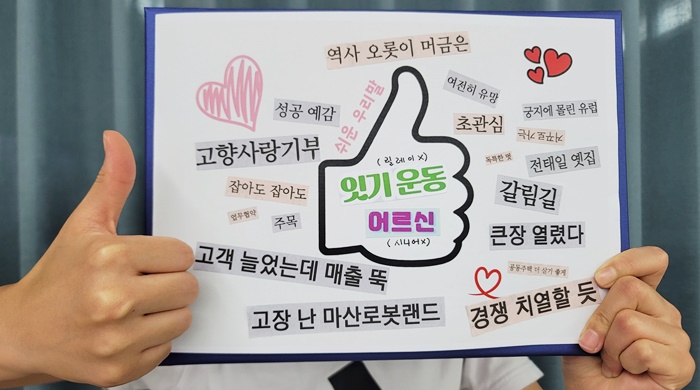 역사 오롯이 머금은
여전히 유망
성공 예감
쉬운 우리말
궁지에 몰린 유럽
초관심
거꾸로 가는
고향사랑기부
(릴레이X)
독특한 멋
전태일 옛집
잇기 운동
잡아도 잡아도
갈림길
업무협약
주목
어르신
(시니어X)
큰장 열렸다
고객 늘었는데 매출 뚝
공동주택 더 살기 좋게
경쟁 치열할 듯
고장 난 마산로봇랜드